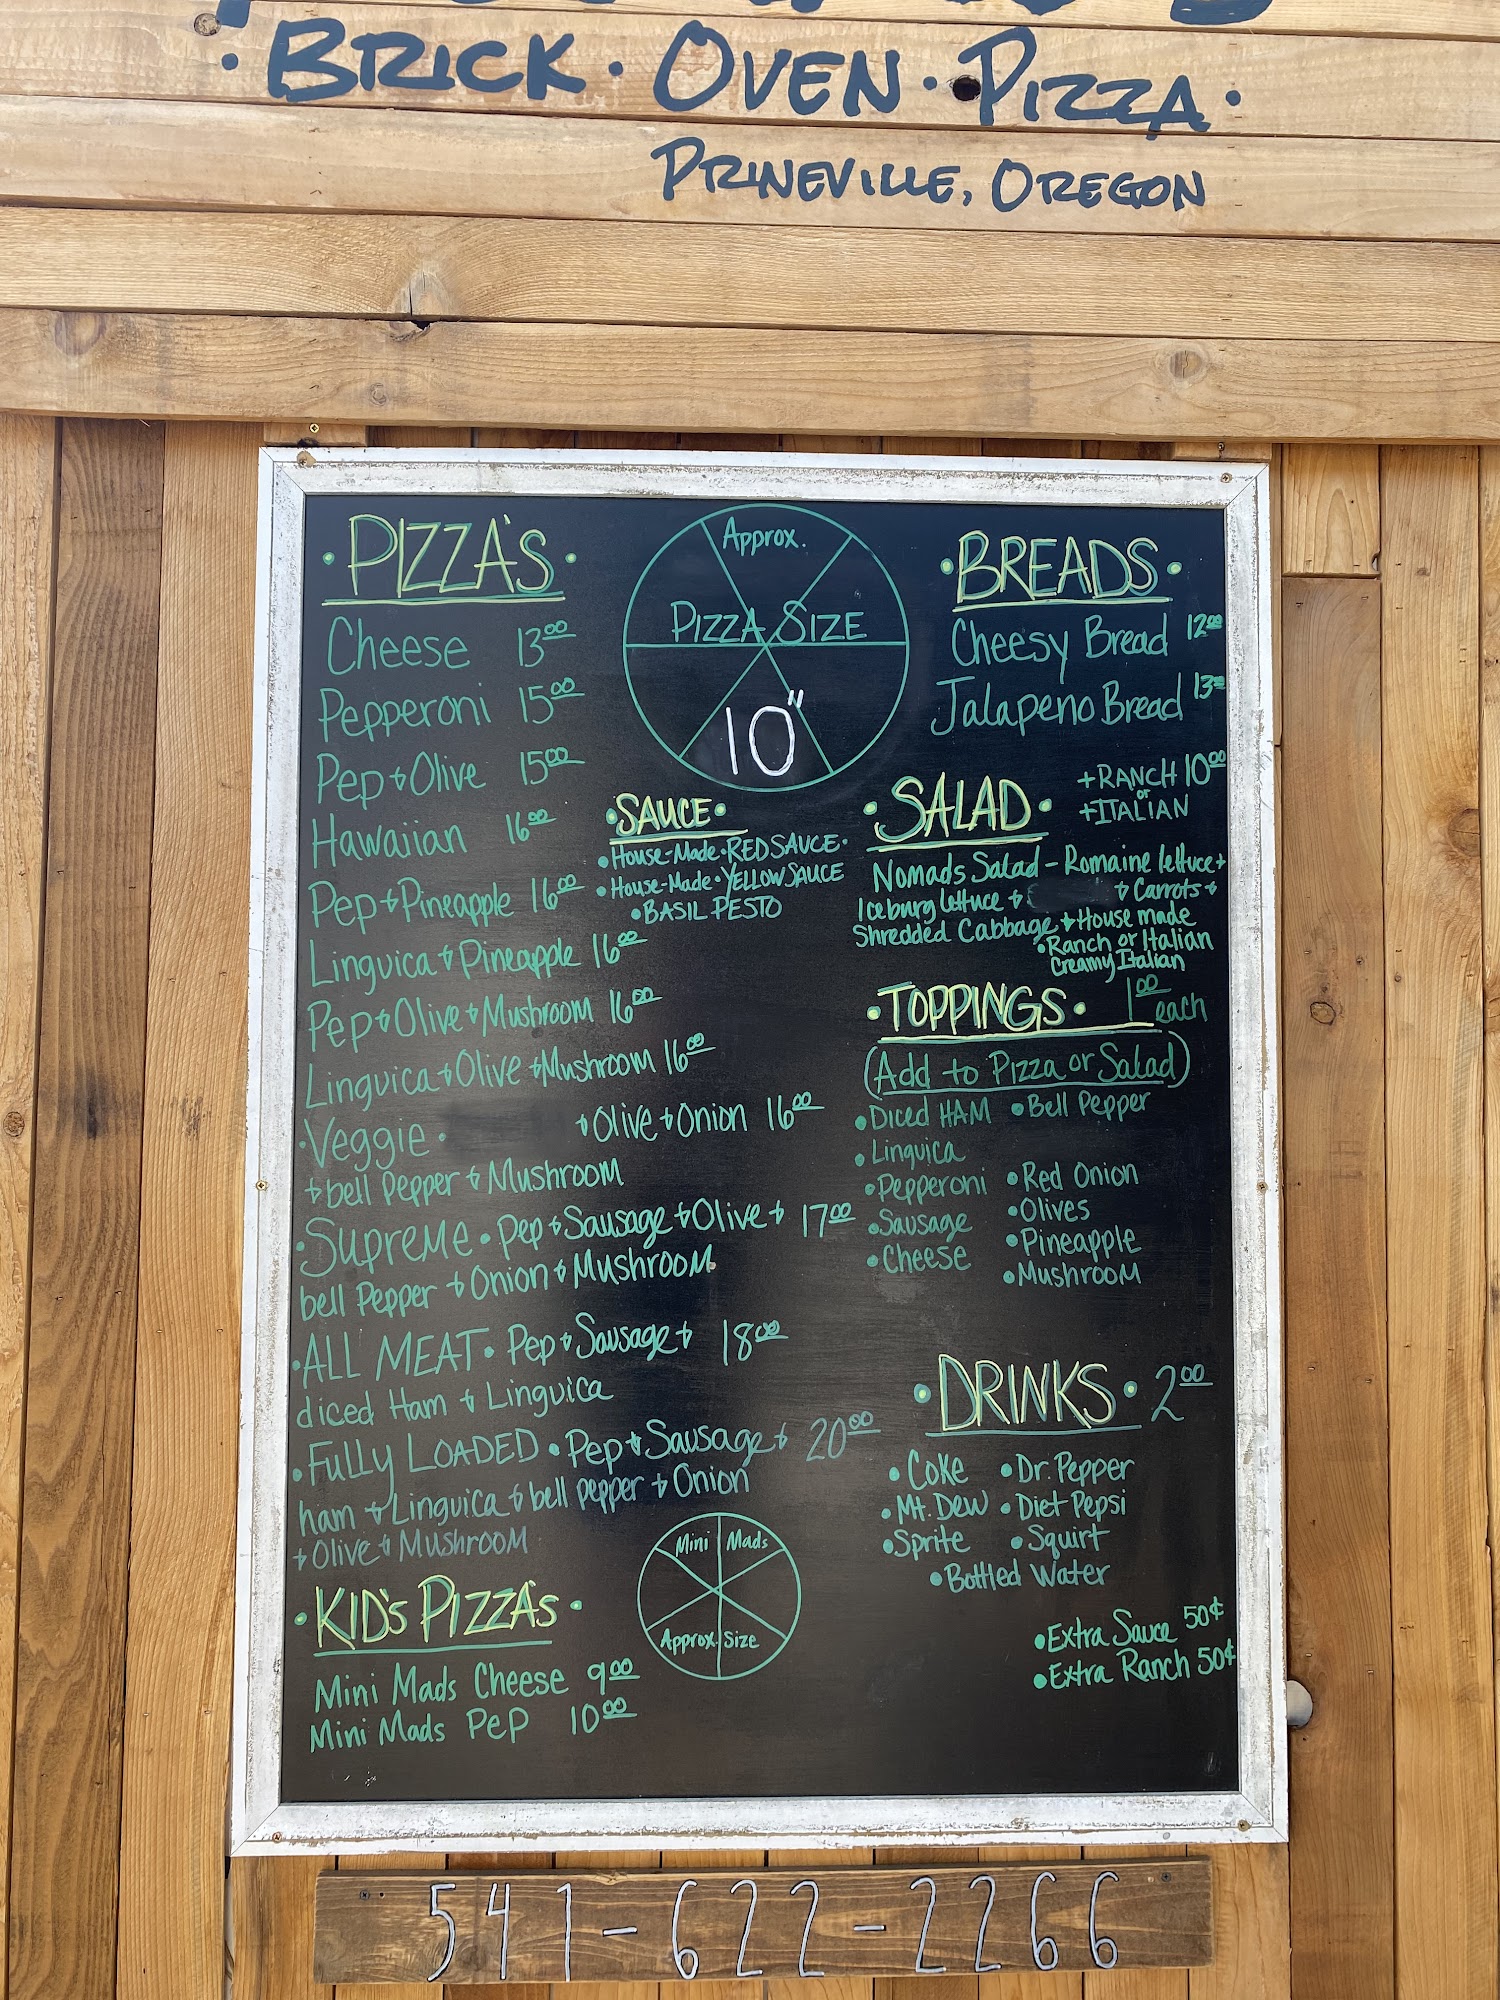 · BRICK · OVEN · PIZZA ·
PRINEVILLE, OREGON
· PIZZA'S ·
Cheese 13.00
Pepperoni 15.00
Pep + Olive 15.00
Hawaiian 16.00
Pep + Pineapple 16.00
Linguica + Pineapple 16.00
Pep + Olive + Mushroom 16.00
Linguica + Olive + Mushroom 16.00
· Veggie · + Olive + Onion 16.00
+ bell Pepper + Mushroom
· Supreme · Pep + Sausage + Olive + 17.00
bell Pepper + Onion + Mushroom
· ALL MEAT · Pep + Sausage + 18.00
diced Ham + Linguica
· Fully LOADED · Pep + Sausage + 20.00
ham + Linguica + bell pepper + Onion
+ Olive + Mushroom
· KID's PIZZA's ·
Mini Mads Cheese 9.00
Mini Mads Pep 10.00
Approx.
PIZZA SIZE
10"
· SAUCE ·
• House-Made • RED SAUCE •
• House-Made • YELLOW SAUCE
• BASIL PESTO
Mini Mads
Approx. Size
· BREADS ·
Cheesy Bread 12.00
Jalapeno Bread 13.00
· SALAD · + RANCH 10.00
or
+ ITALIAN
Nomads Salad - Romaine lettuce +
Iceburg lettuce + + Carrots +
Shredded Cabbage + House made
• Ranch or Italian
Creamy Italian
· TOPPINGS · 1.00 each
(Add to Pizza or Salad)
• Diced HAM • Bell Pepper
• Linguica
• Pepperoni • Red Onion
• Sausage • Olives
• Cheese • Pineapple
• Mushroom
· DRINKS · 2.00
• Coke • Dr. Pepper
• Mt. Dew • Diet Pepsi
• Sprite • Squirt
• Bottled Water
• Extra Sauce 50¢
• Extra Ranch 50¢
541-622-2266